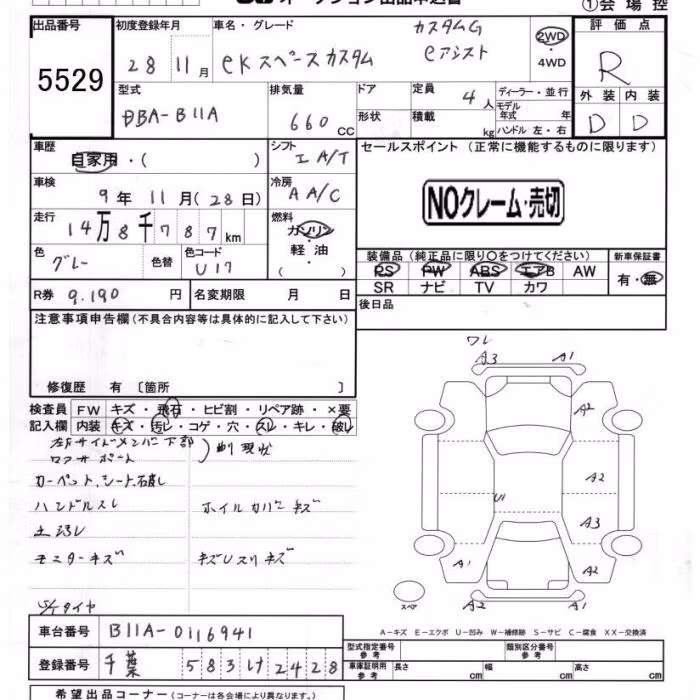 ①会場控
出品番号
5529
初度登録年月
28 11月
車名・グレード
カスタムG
eKスペースカスタム eアシスト
2WD
・
4WD
評価点
R
外装 内装
D D
型式
DBA-B11A
排気量
660 CC
ドア
形状
定員
4人
積載
kg
ディーラー・並行
モデル年式 年
ハンドル 左・右
車歴
自家用・( )
シフト
I A/T
車検
9年11月(28日)
冷房
A A/C
走行
14万8千787km
燃料
ガソリン
・
軽油
( )
色
グレー
色替
色コード
U17
R券
9.190円
名変期限 月 日
セールスポイント (正常に機能するものに限ります)
NOクレーム・売切
装備品 (純正品に限り○をつけてください)
PS PW ABS エアB AW
SR ナビ TV カワ
新車保証書
有・無
後日品
注意事項申告欄(不具合内容等は具体的に記入して下さい)
修復歴 有 〔箇所 〕
検査員
記入欄
FW キズ・飛石・ヒビ割・リペア跡・×要
内装 キズ・汚レ・コゲ・穴・スレ・キレ・破レ
左右サイドメンバー下部
現状
カーペット、シート破レ
ハンドルスレ
ホイルカバーキズ
土汚レ
モニターキズ
キズUスリキズ
タイヤ
ワレ
A3 A1
A2
A2
U1
A3
A1 A2
A2 A1
スペア
A-キズ E-エクボ U-凹み W-補修跡 S-サビ C-腐食 XX-交換済
車台番号
B11A-0116941
登録番号
千葉 583 け 2428
型式指定番号
参考
類別区分番号
参考
車庫証明用
参考
長さ cm
幅 cm
高さ cm
希望出品コーナー (コーナーは各会場により異なります。)